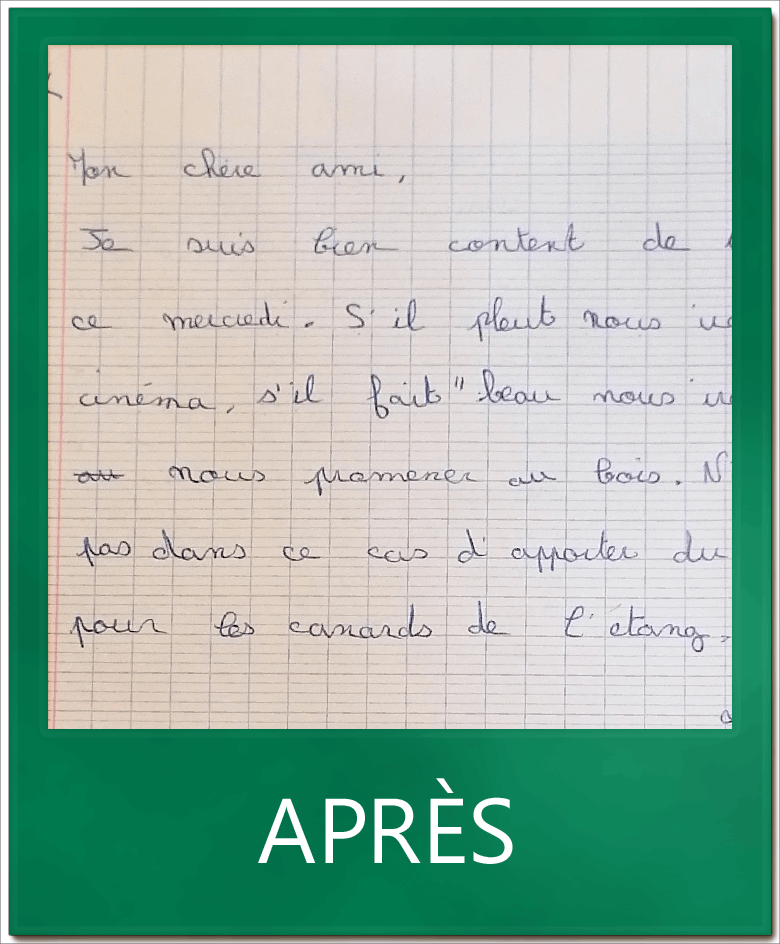 Mon chère ami,
Je suis bien content de
ce mercredi. S'il pleut nous
cinéma, s'il fait" beau nous
au nous promener au bois. N'
pas dans ce cas d'apporter du
pour les canards de l'étang.
APRÈS